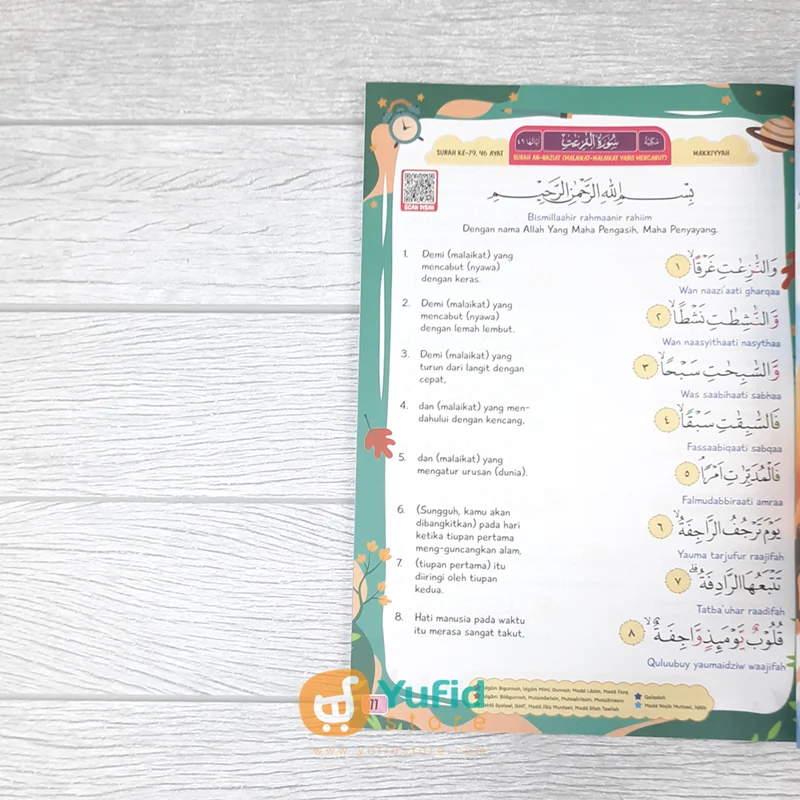 SURAH KE-79, 46 AYAT
اٰيَاتُهَا ٤٦
سُوْرَةُ النّٰزِعٰتِ
مَكِّيَّةٌ
SURAH AN-NAZIAT (MALAIKAT-MALAIKAT YANG MENCABUT)
MAKKIYYAH
SCAN DISINI
بِسْمِ اللهِ الرَّحْمٰنِ الرَّحِيْمِ
Bismillaahir rahmaanir rahiim
Dengan nama Allah Yang Maha Pengasih, Maha Penyayang.
1. Demi (malaikat) yang
mencabut (nyawa)
dengan keras.
وَالنّٰزِعٰتِ غَرْقًاۙ ١
Wan naazi'aati gharqaa
2. Demi (malaikat) yang
mencabut (nyawa)
dengan lemah lembut.
وَّالنّٰشِطٰتِ نَشْطًاۙ ٢
Wan naasyithaati nasythaa
3. Demi (malaikat) yang
turun dari langit dengan
cepat,
وَّالسّٰبِحٰتِ سَبْحًاۙ ٣
Was saabihaati sabhaa
4. dan (malaikat) yang men-
dahului dengan kencang,
فَالسّٰبِقٰتِ سَبْقًاۙ ٤
Fassaabiqaati sabqaa
5. dan (malaikat) yang
mengatur urusan (dunia).
فَالْمُدَبِّرٰتِ اَمْرًاۘ ٥
Falmudabbiraati amraa
6. (Sungguh, kamu akan
dibangkitkan) pada hari
ketika tiupan pertama
meng-guncangkan alam,
يَوْمَ تَرْجُفُ الرَّاجِفَةُۙ ٦
Yauma tarjufur raajifah
7. (tiupan pertama) itu
diiringi oleh tiupan
kedua.
تَتْبَعُهَا الرَّادِفَةُۗ ٧
Tatba'uhar raadifah
8. Hati manusia pada waktu
itu merasa sangat takut,
قُلُوْبٌ يَّوْمَىِٕذٍ وَّاجِفَةٌۙ ٨
Quluubuy yaumaidziw waajifah
Idgām Bigunnah, Idgām Mimi, Gunnah, Madd Lāzim, Madd Farq
Qalqalah
Yufid
store